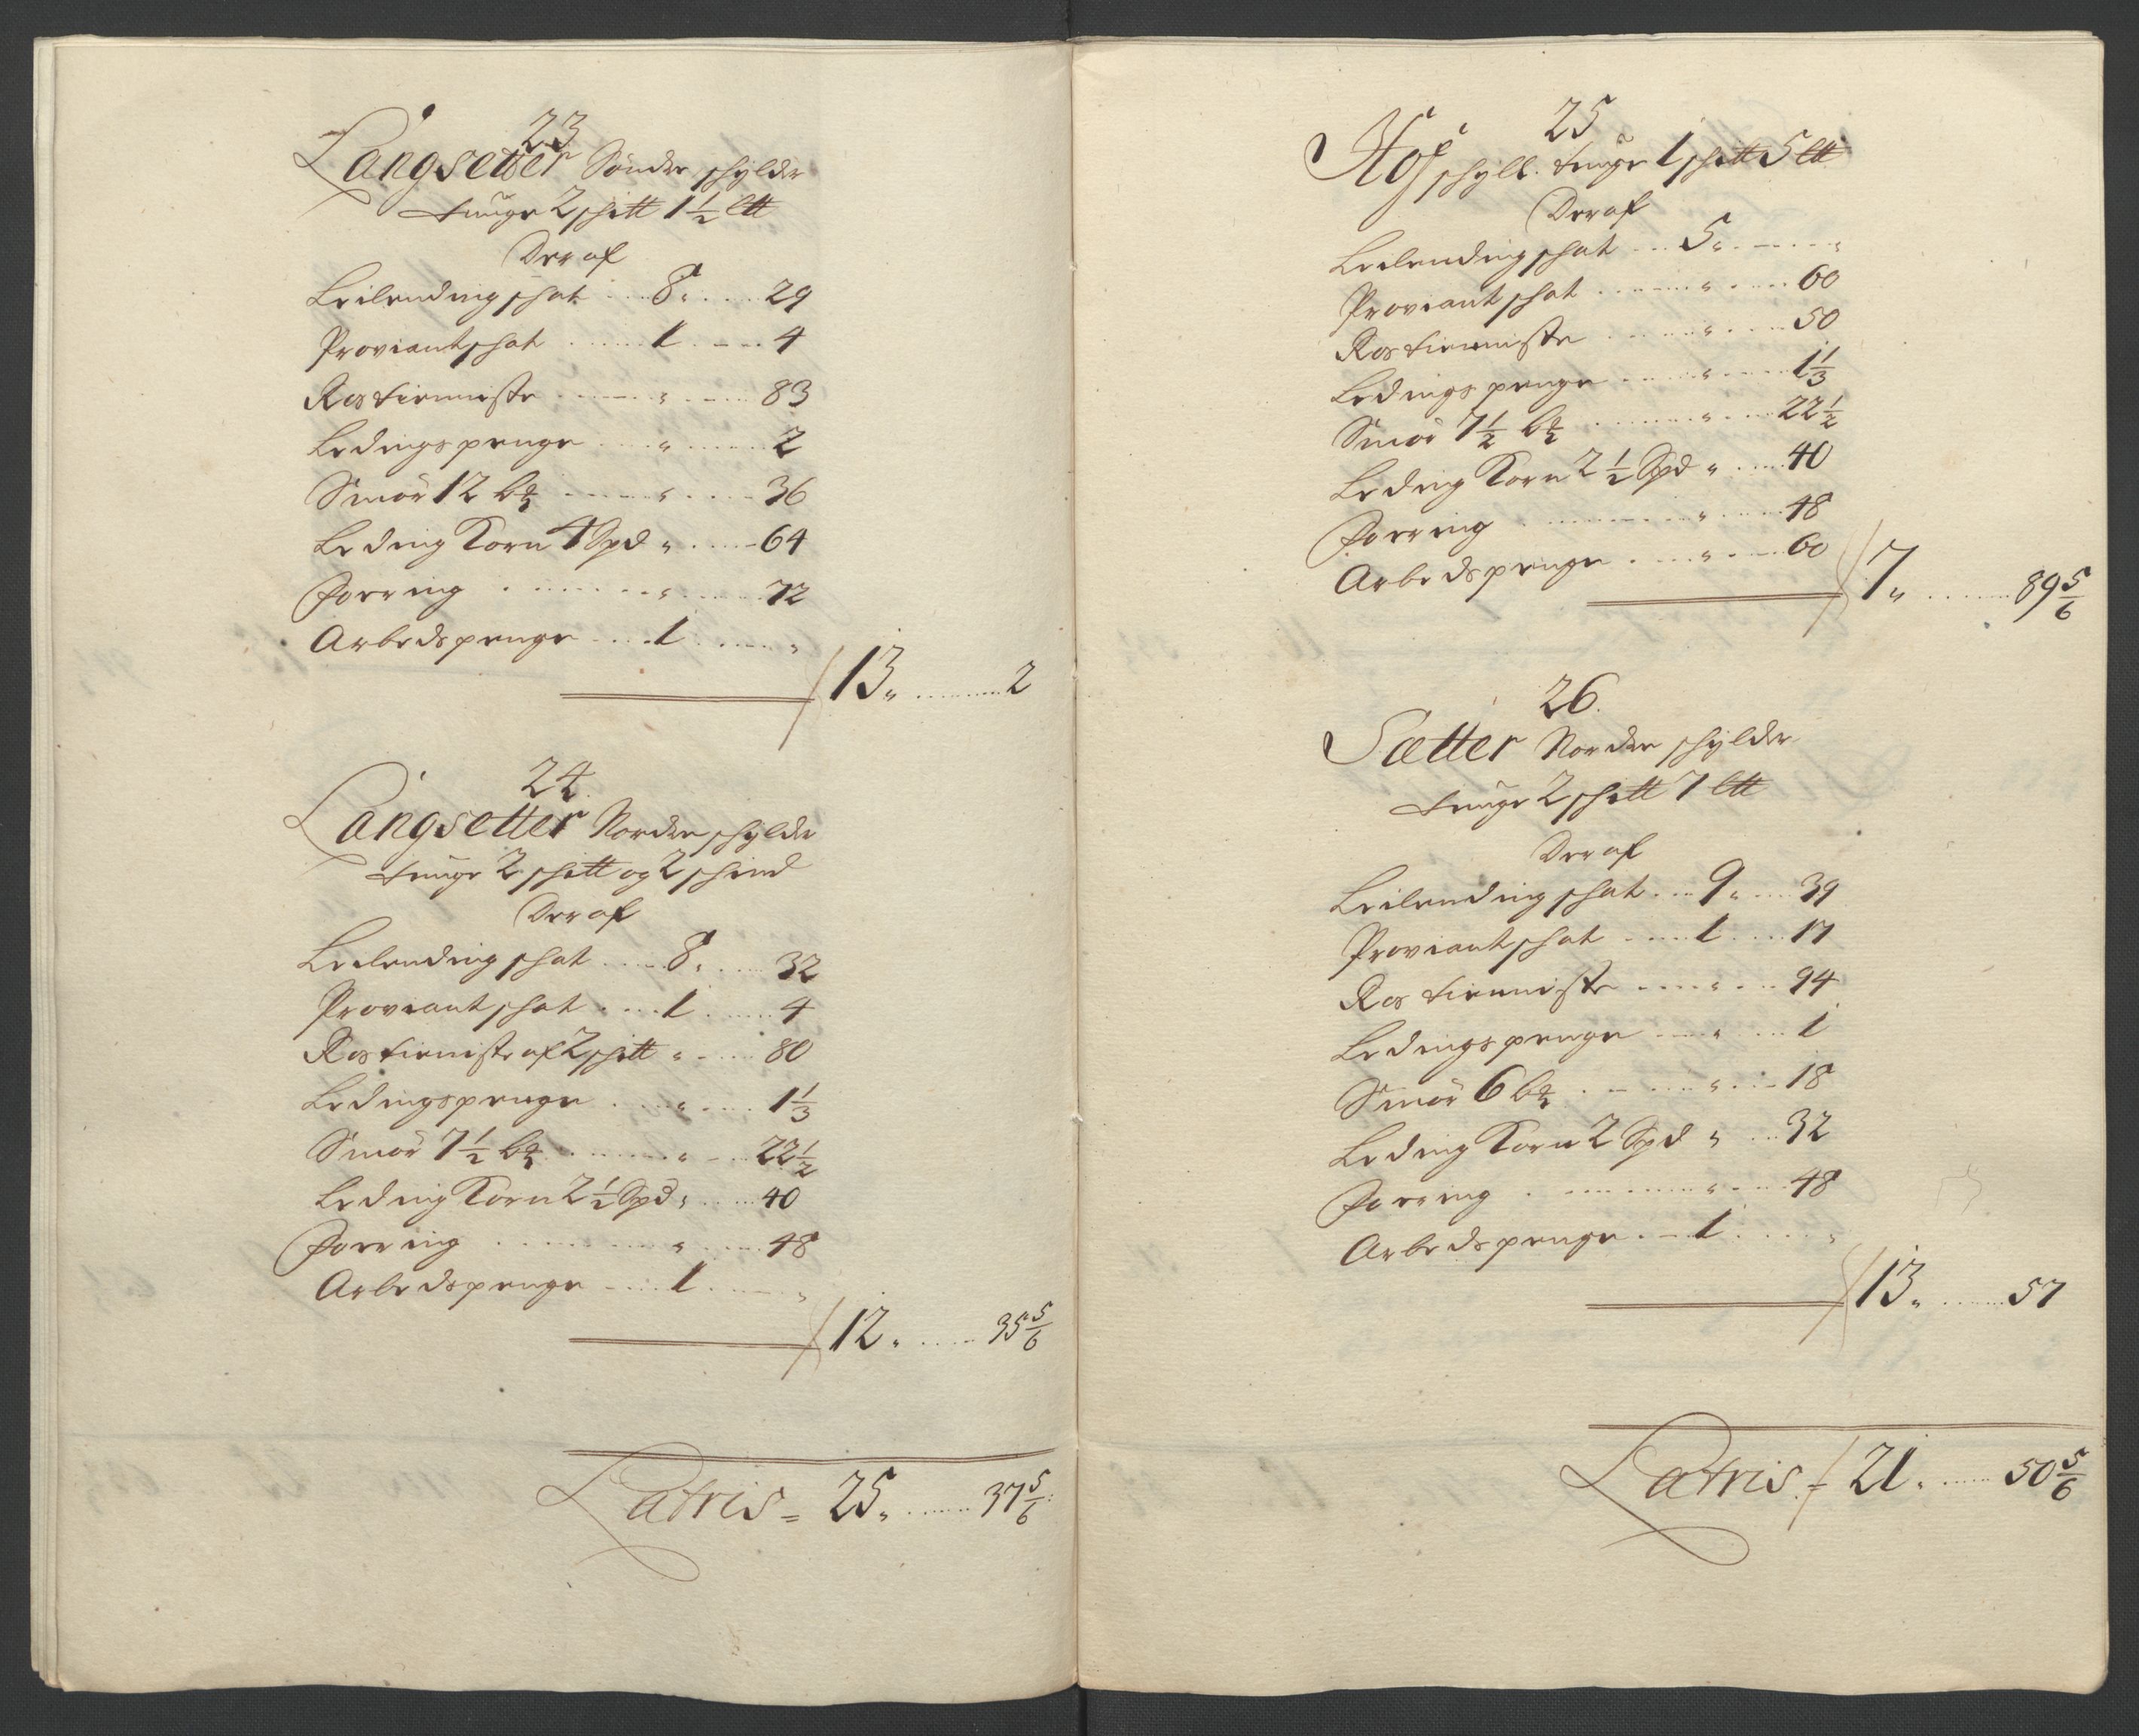 23
Langsetter Søndre schylder
aarlige 2 schøtt 1½ ltt
Der af
Leilending schat 8 „ 29
Proviant schat 1 4
Ros tienniste „ 83
Ledings penge „ 2
Smör 12 b℔ „ 36
Leding Korn 4 Spd „ 64
Foering „ 72
Arbeds penge 1 „
13 „ 2
24
Langsetter Nordre schylder
2 schøtt og 2 schind
Der af
Leilending schat 8 „ 32
Proviant schat 1 4
Ros tieniste af 2 schøtt „ 80
Ledings penge „ 1⅓
Smör 7½ b℔ „ 22½
Leding Korn 2½ Spd „ 40
Foering „ 48
Arbeds penge 1 „
12 „ 35⅚
Latris = 25 „ 37⅚
25
Hof schyll. 1 schøtt 5 ltt
Der af
Leilending schat 5 „ „
Proviant schat „ 60
Ros tienniste „ 50
Ledings penge „ 1⅓
Smör 7½ b℔ „ 22½
Leding Korn 2½ Spd „ 40
Foering „ 48
Arbeds penge „ 60
7 „ 89⅚
26.
Sætter Nordre schylder
2 schøtt 7 ltt
Der af
Leilending schat 9 „ 39
Proviant schat 1 17
Ros tienniste „ 94
Ledings penge „ 1
Smör 6 b℔ „ 18
Leding Korn 2 Spd „ 32
Foering „ 48
Arbeds penge 1 „
13 „ 57
Latris 21 „ 50⅚